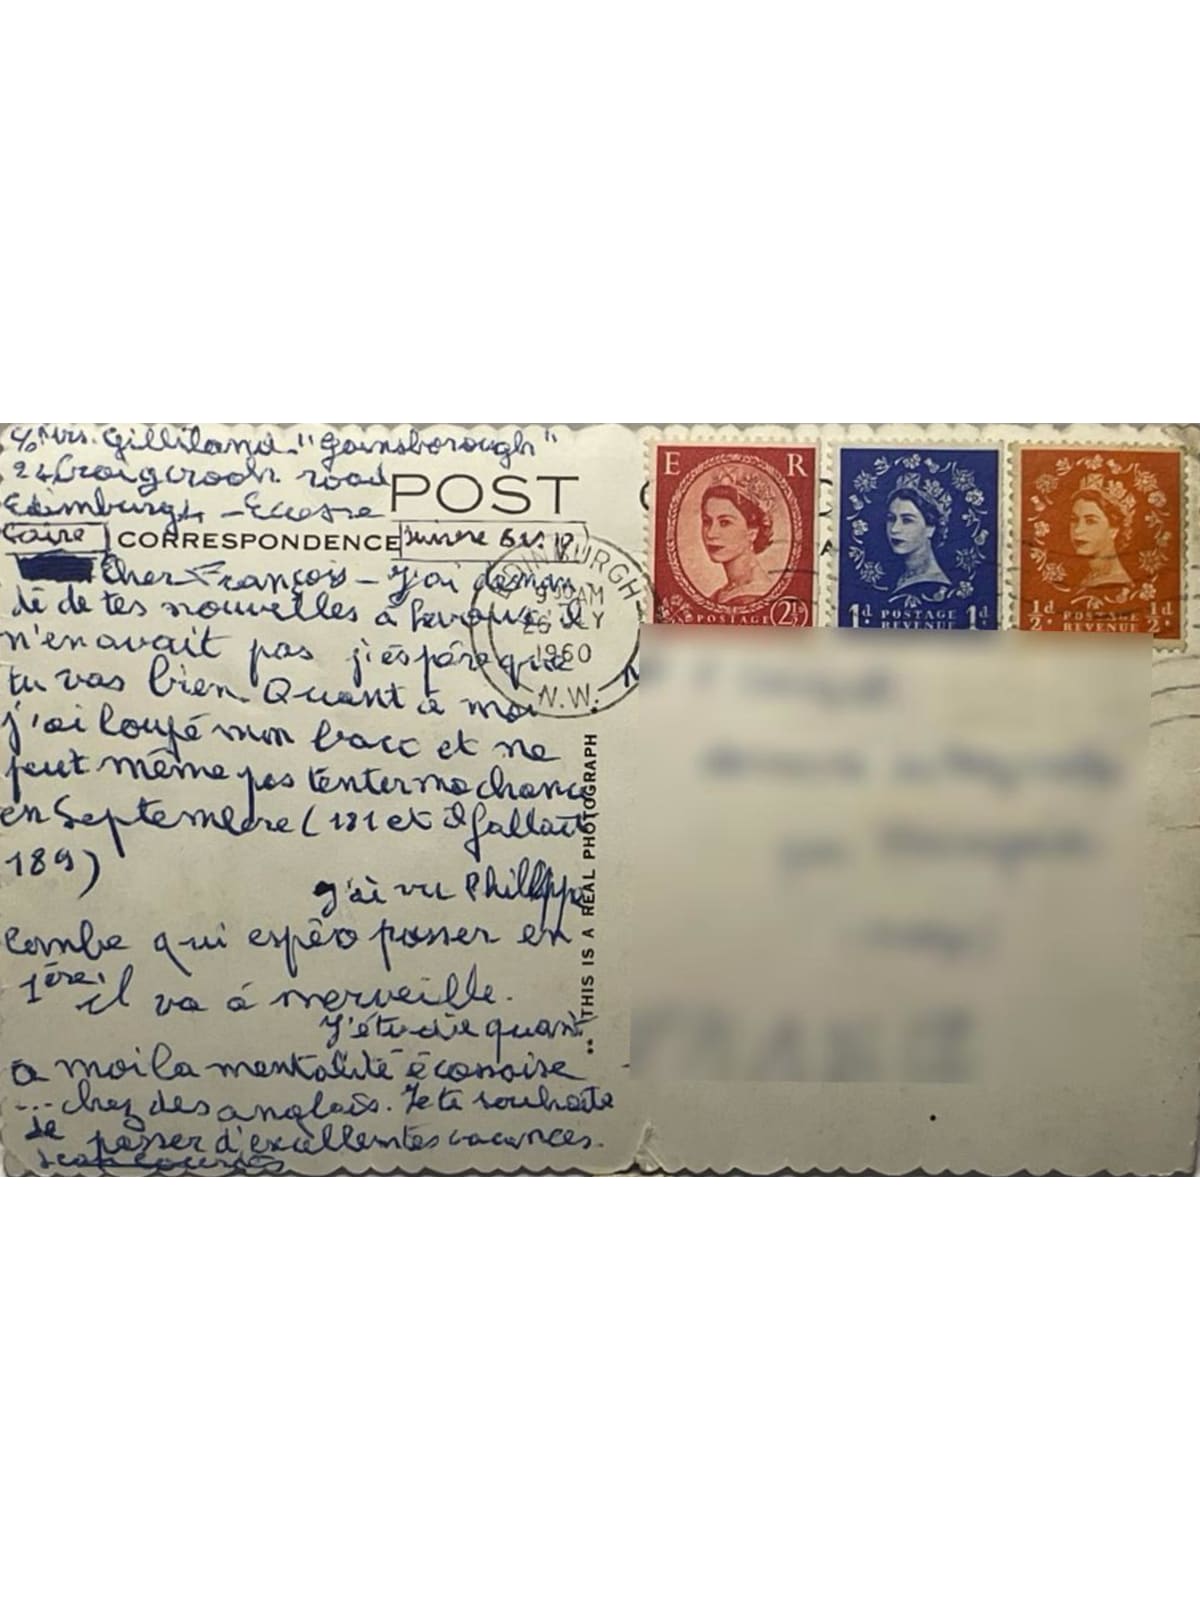 c/o Mrs. Gilliland. "Gainsborough"
24 Craigcrook road
Edimburgh - Ecosse
POST
CORRESPONDENCE
Cher François - J'ai deman
dé de tes nouvelles à il
n'en avait pas j'espère que
tu vas bien. Quant à moi
j'ai loupé mon bacc et ne
peut même pas tenter ma chance
en Septembre (181 et il fallait
189)
J'ai vu Philippe
Combe qui espère passer en
1ère. il va à merveille.
J'étudie quant
à moi la mentalité écossaise
... chez des anglais. Je te souhaite
de passer d'excellentes vacances.
THIS IS A REAL PHOTOGRAPH
EDINBURGH
9 30 AM
26 JLY
1960
N.W.
E R
POSTAGE 2½d
1d POSTAGE REVENUE 1d
½d POSTAGE REVENUE ½d